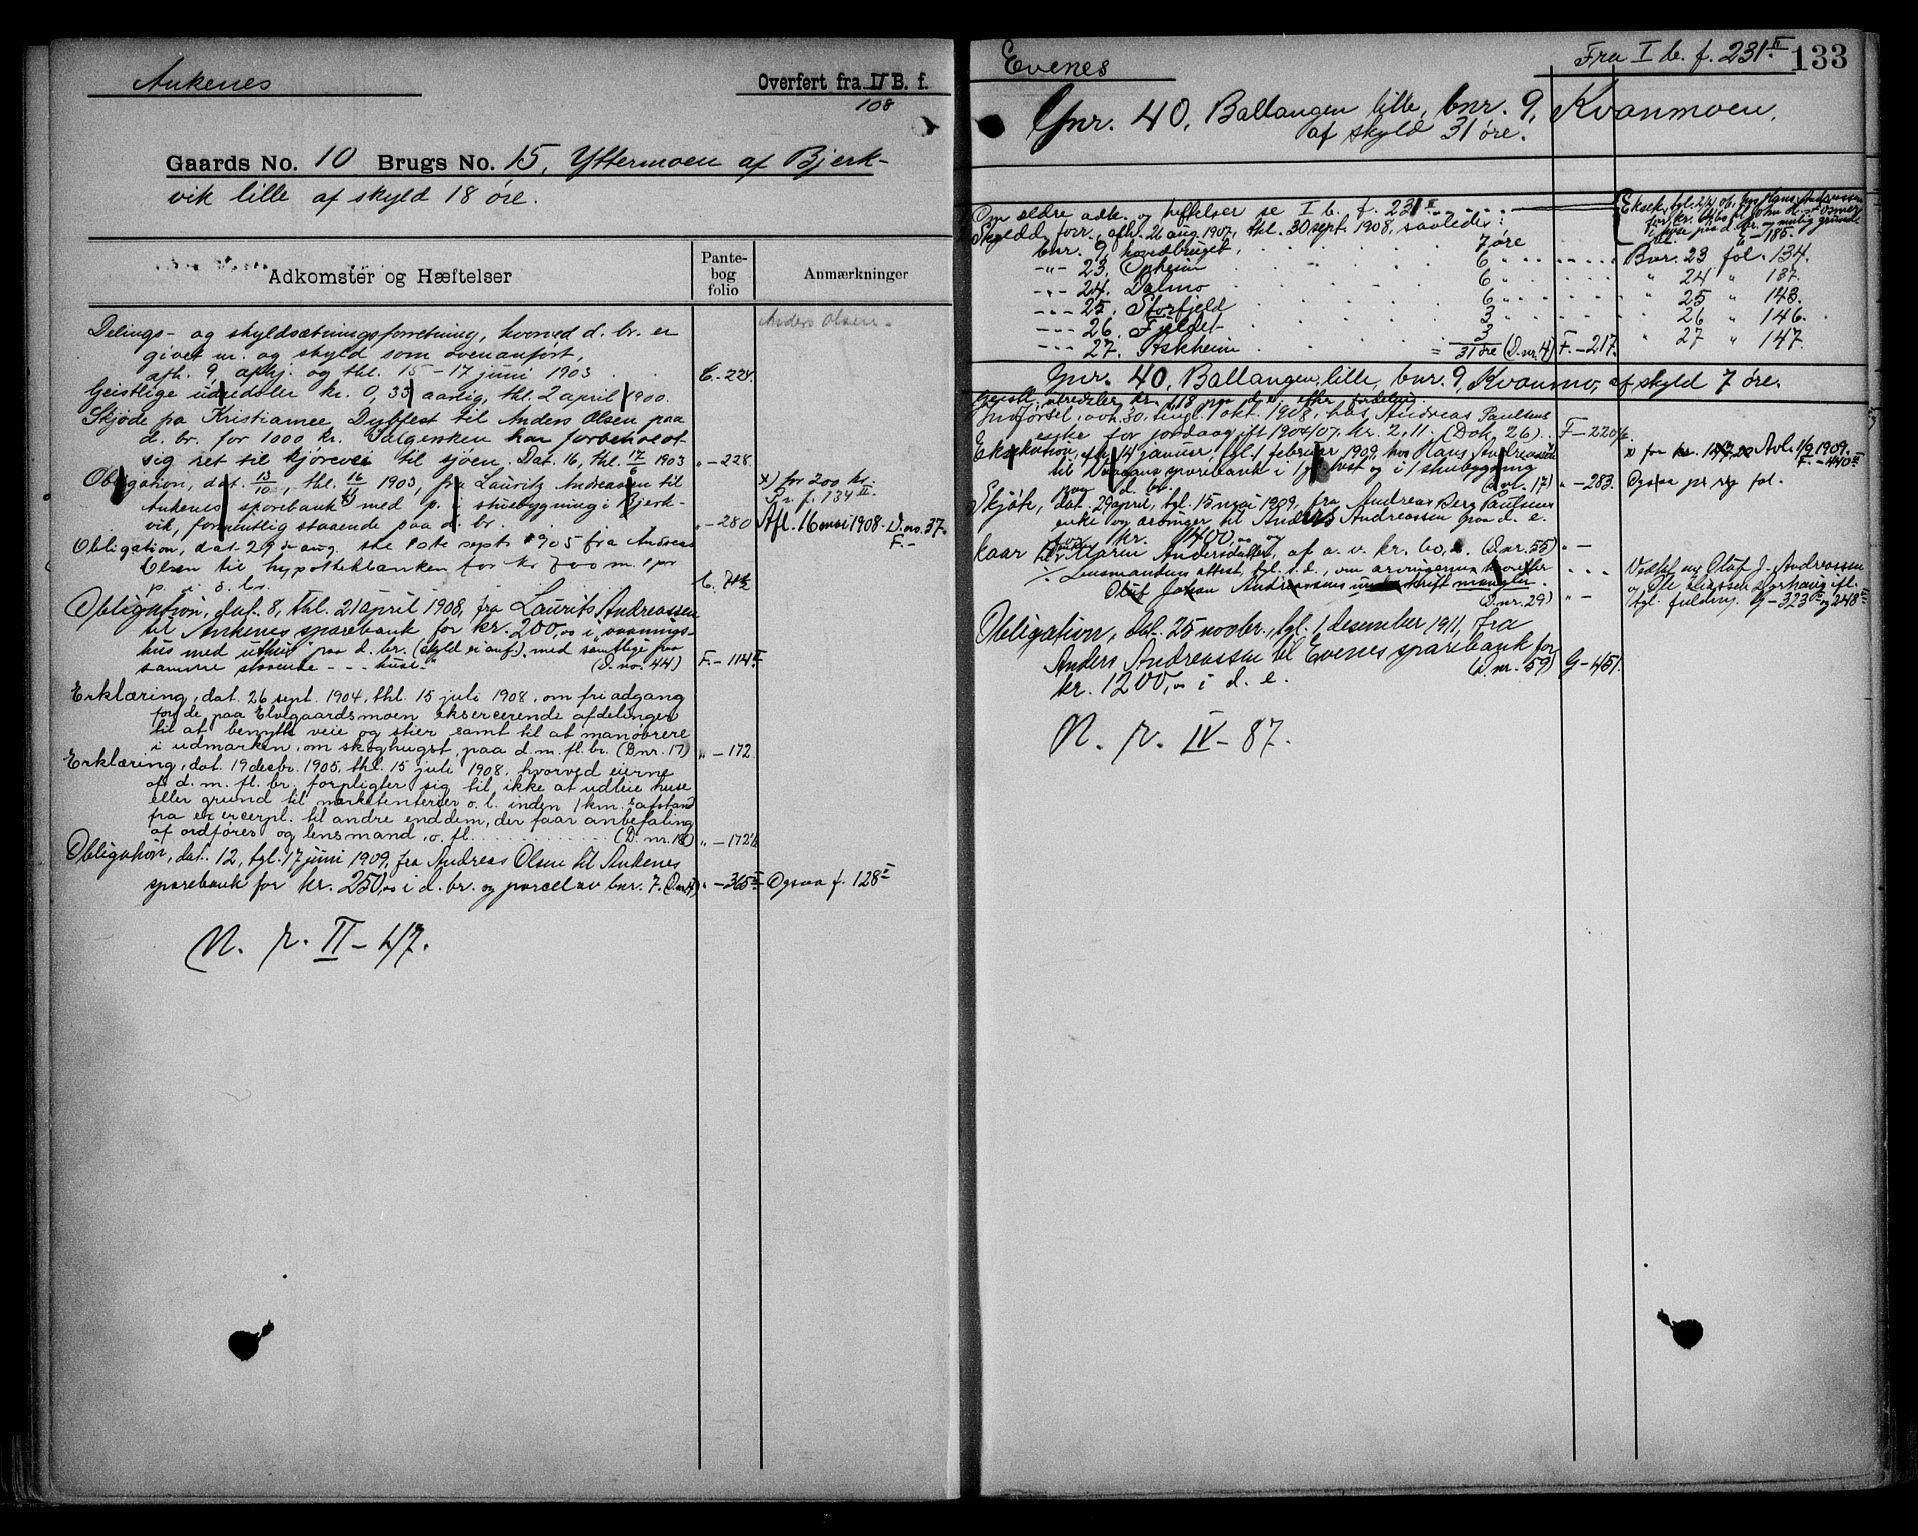 Ankenes
Overført fra IV B. f.
108
Gaards No. 10 Brugs No. 15, Yttermoen af Bjerk-
vik lille af skyld 18 øre.
Adkomster og Hæftelser
Pante-
bog
folio
Anmærkninger
Anders Olsen.
Delings- og skyldsætningsforretning, hvorved d. br. er
givet nr. og skyld som ovenanført,
afh. 9 aphj. og thl. 15-17 juni 1903 C.-224.
Geistlige udredsler kr. 0,35 aarlig, thl. 2 april 1900.
Skjøde fra Kristianee Dybfest til Anders Olsen paa
d. br. for 1000 kr. Sælgersken har forbeholdt
sig ret til kjørevei til sjøen. Dat. 16, thl. 17/6 1903 „-228.
Obligation, dat. 13/10, thl. 16/11 1903, fra Lauritz Andreassen til
Ankenes sparebank med p. i stuebygning i Bjerk-
vik, formentlig staaende paa d. br. „-280
x) for 200 kr.
Pr. f. 134 II.
Afl. 16 mai 1908. D. no. 37.
F.-
Obligation, dat 29de aug. thl 10de sept 1905 fra Andreas
Olsen til hypothekbanken for kr 700 m. 1 pr
p. i d. br.
Obligation, dat. 8, thl. 21 april 1908, fra Laurits Andreassen
til Ankenes sparebank for kr. 200,00 i vaanings-
hus med uthus paa d. br. (skyld ei anf.), med samtlige paa
samme staaende --- huse." (D. no. 44) F.-114 II
Erklæring, dat. 26 sept. 1904, thl. 15 juli 1908, om fri adgang
for de paa Elvegaardsmoen eksercerende afdelinger
til at benytte veie og stier samt til at manøvrere
i udmarken, om skoghugst, paa d. m. fl. br. (D.nr. 17) „-172
Erklæring, dat. 19 desbr. 1905, thl. 15 juli 1908, hvorved eierne
af d. m. fl. br. forpligter sig til ikke at udleie huse
eller grund til marketenterier o. l. inden 1 km.s afstand
fra exercerpl. til andre end dem, der faar anbefaling
af ordføres og lensmand, o. fl. (D. nr. 18) „-172
Obligation, dat. 12, tgl. 17 juni 1909, fra Andreas Olsen til Ankenes
sparebank for kr. 250,00 i d. br. og parcel av bnr. 7. „-365 II Ogsaa f. 128 I
N. r. II-47.
Evenes
Fra I b. f. 231 II
133
Gnr. 40, Ballangen lille, bnr. 9, Kvanmoen,
af skyld 31 øre.
Om ældre adk. og heftelser se I b. f. 231 II
Skyldd. forr., afh. 26 aug. 1907, thl. 30 sept. 1908, saaledes:
bnr. 9, hovedbruget, 7 øre
-"- 23, Opheim 6 " Bnr. 23 fol. 134.
-"- 24, Dalmo 6 " " 24 " 137.
-"- 25, Storfjeld 6 " " 25 " 143.
-"- 26, Fjeldet 3 " " 26 " 146.
-"- 27, Askheim 3 " 27 " 147.
= 31 øre (D.nr. 4) F.-217.
Gnr. 40, Ballangen lille, bnr. 9, Kvanmo, af skyld 7 øre.
Geistl. utredsler kr. 1,18 paa d. e. efter fordeling.
Indførsel, avh. 30, tingl. 1 okt. 1908, hos Andreas Paulsens
enke for jordavgift 1904/07, kr. 2,11. (Dok. 26). F-220
Eksekution, afh. 14 januar, tgl. 1 februar 1909, hos Hans Andreassen
til sparebank i 1 hest og i 1 stuebygning
paa d. br. (D.nr. 17) „-283. Ogsaa pr. fol.
x) for kr. Avl. 1/9 1909.
F.-440 II
Skjøte, dat. 29 april, tgl. 15 mai 1909, fra Andreas Berg Paulsens
enke og arvinger til Anders Andreassen paa d. e.
for kr. 1400,00 og
kaar til Maren Andersdatter, af a. v. kr. 60,00. (D.nr. 55) „-
Lensmandens attest, tgl. s. d., om arvingerne, hvorefter
Oluf Johan Andreassens underskrift mangler.
(D.nr. 29) „-
Vedtat av Olaf J. Andreassen
tgl. fuldm. G-323 II og 248 III
Obligation, dat. 25 novbr., tgl. 1 desember 1911, fra
Anders Andreassen til Evenes sparebank for
kr. 1200,00 i d. e. (D. nr. 59) G-451.
N. r. IV-87.